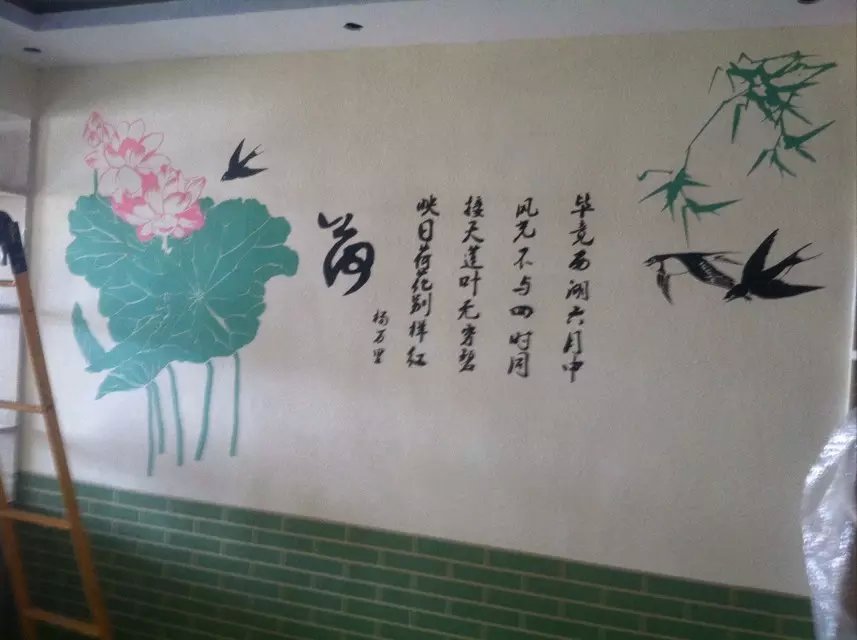 毕竟西湖六月中
风光不与四时同
接天莲叶无穷碧
映日荷花别样红
杨万里
荷